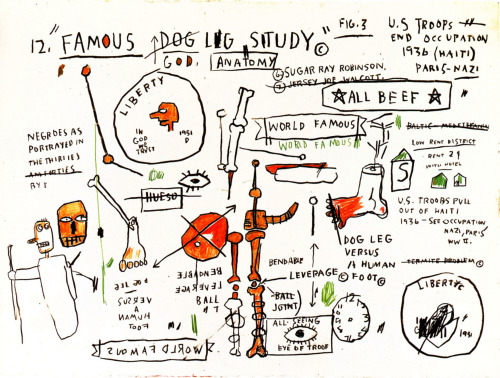 12. "FAMOUS DOG LEG STUDY"©
GOD. ANATOMY
FIG. 3
U.S TROOPS
END OCCUPATION
1936 (HAITI)
PARIS-NAZI
SUGAR RAY ROBINSON.
JERSEY JOE WALCOTT.
ALL BEEF
LIBERTY
IN
GOD
WE
TRUST
1951
D
WORLD FAMOUS
WORLD FAMOUS
BALTIC MEDITERRANEAN
LOW RENT DISTRICT
RENT 2$
WITH HOTEL
S
NEGROES AS
PORTRAYED IN
THE THIRTIES
HUESO
U.S. TROOPS PULL
OUT OF HAITI
1936 - SEE OCCUPATION
NAZI, PARIS
WW II.
TERMITE PROBLEM ©
DOG LEG
VERSUS
A HUMAN
FOOT©
BENDABLE
LEVERAGE
BALL
JOINT
BENDABLE
LEVERAGE
BALL
DOG LEG
VERSUS
A HUMAN
FOOT
ALL-SEEING
EYE OF TROOF
WORLD FAMOUS
12
LIBERTY
1951